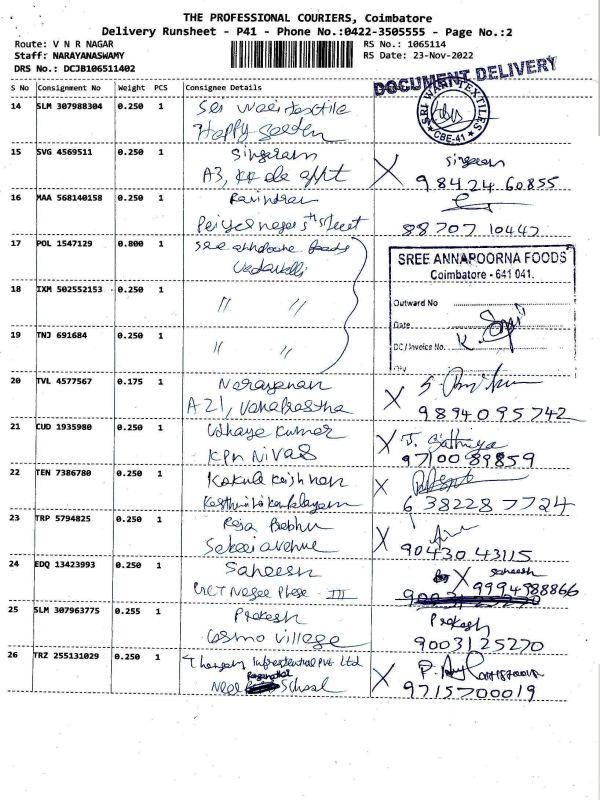 THE PROFESSIONAL COURIERS, Coimbatore
Delivery Runsheet - P41 - Phone No.:0422-3505555 - Page No.:2
Route: V N R NAGAR
RS No.: 1065114
Staff: NARAYANASWAMY
RS Date: 23-Nov-2022
DRS No.: DCJB106511402
DOCUMENT DELIVERY
S No Consignment No Weight PCS Consignee Details
14 SLM 307988304 0.250 1 Sri Vaari textile
Happy garden
SRI VAARI TEXTILES
CBE-41
15 SVG 4569511 0.250 1 Singaram
A3, appt
Singaram
98424 60855
16 MAA 568140158 0.250 1 Ravindran
Periyar nagar 5th street
88707 10447
17 POL 1547129 0.800 1 Sree annapoorna foods
Vadavalli
SREE ANNAPOORNA FOODS
Coimbatore - 641 041.
18 IXM 502552153 0.250 1 " "
Outward No
Date
19 TNJ 691684 0.250 1 " "
DC/Invoice No.
20 TVL 4577567 0.175 1 Narayanan
A21, Vanaprastha
9894095742
21 CUD 1935980 0.250 1 Udhaya Kumar
KPN Nivas
J. Sathiya
9710089859
22 TEN 7386780 0.250 1 Kokula Krishnan
6382287724
23 TRP 5794825 0.250 1 Raja Prabhu
avenue
90430 43115
24 EDQ 13423993 0.250 1 Saheesh
Nagar Phase - III
Saheesh
9994988866
25 SLM 307963775 0.255 1 Prakash
Cosmo Village
Prakash
9003125270
26 TRZ 255131029 0.250 1 Thangam Infrastructural Pvt Ltd
Near School
9715700019